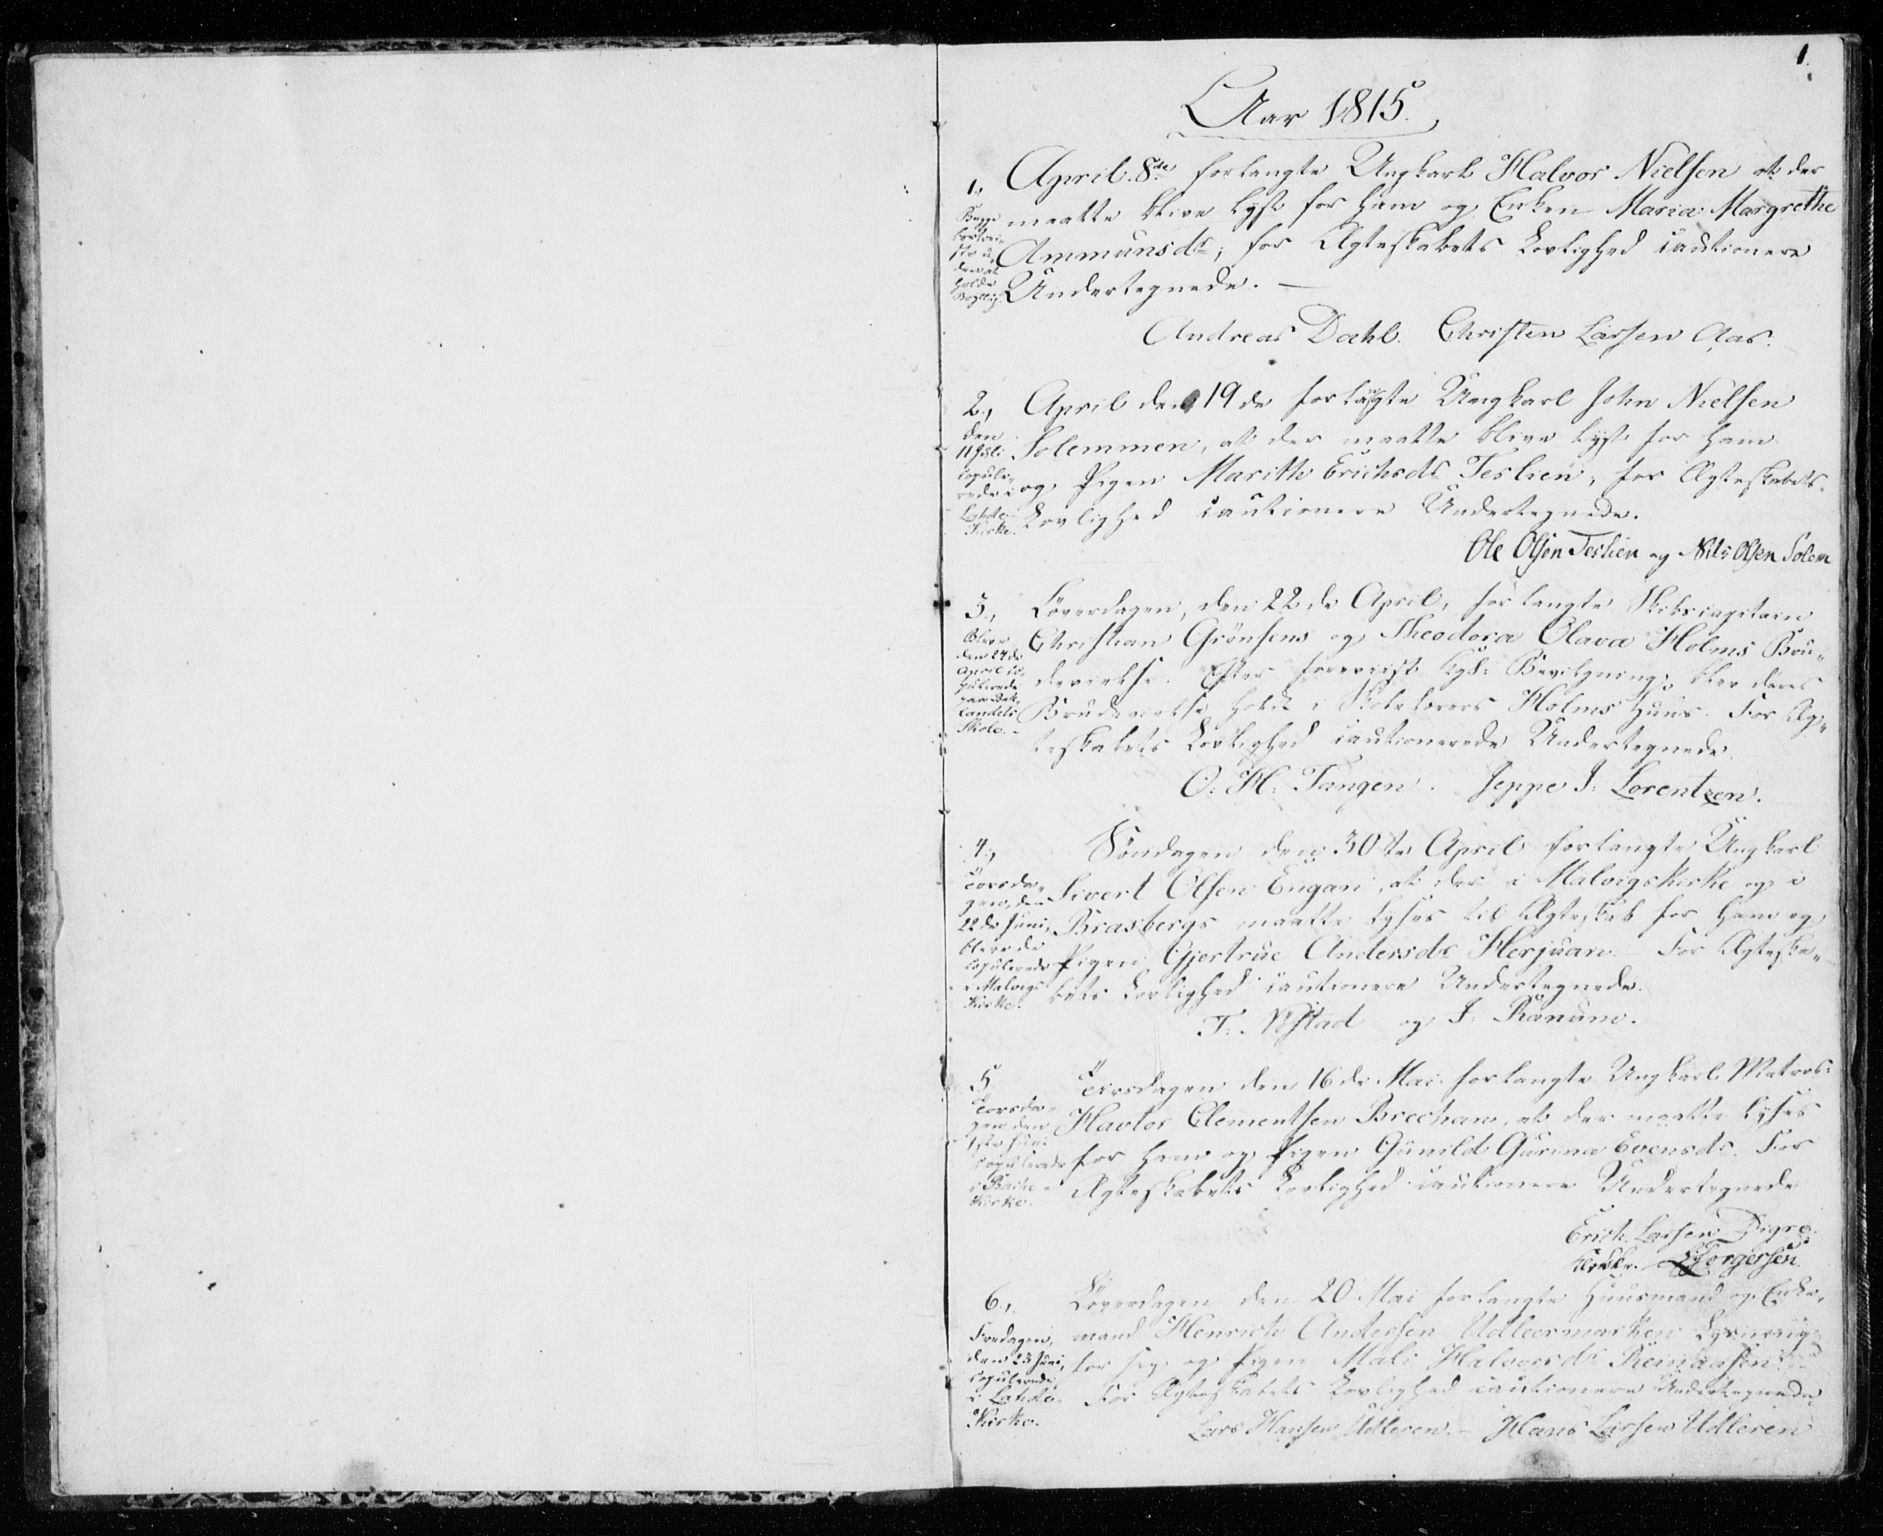 1.
Aar 1815.
1., April 8de forlangte Ungkarl Halvor Nielsen at der
maatte blive lyst for ham og Enken Maria Margrethe
Ammunsdr; for Ægteskabets Lovlighed cautionere
Undertegnede. —
Andreas Dahl. Christen Larsen Aas.
2., April den 19de forlangte Ungkarl John Nielsen
Solemmen, at der maatte blive lyst for ham
og Pigen Marith Erichsdr Teslien, for Ægteskabets
Lovlighed cautionere Undertegnede.
den
11 Juli
copule-
rede i
Lade
Kirke.
Ole Olsen Teslien og Nils Olsen Solem
3., Løverdagen, den 22de April, forlangte Skibscapitain
Christian Grönsens og Theodora Olava Holms Bru-
devielse. Efter foreviist kgl: Bevilgning, blev deres
Brudevielse holdt i Skolelærers Holms Huus. For Æg-
teskabets Lovlighed cautionerede Undertegnede.
Bleve
den 24de
April co-
pulerede
paa Bak-
landets
Skole.
O. H. Tangen. Jeppe J. Lorentzen.
4., Søndagen den 30te April forlangte Ungkarl
Sivert Olsen Engan, at der i Malvigs Kirke og i
Brasbergs maatte lyses til Ægteskab for ham og
Pigen Gjertrue Andersdr Herjuan. — For Ægteska-
bets Lovlighed cautionere Undertegnede.
Torsda-
gen, den
22de Juni,
bleve de
copulerede
i Malvigs
Kirke.
T. Nstad og J. Ranum.
5. Tirsdagen den 16de Mai forlangte Ungkarl Matros
Havtor Clementsen Brechan, at der maatte lyses
for ham og Pigen Gunild Gurina Evensdr. For
Ægteskabets Lovlighed cautionere Undertegnede
Torsda-
gen den
1ste Juni
copulerede
i Bakke
Kirke.
Erich Larsen Digre.
LTorgersen
6., Løverdagen den 20 Mai forlangte Huusmand og Enke-
mand Henrich Andersen Udleermarken Lysning
for sig og Pigen Mali Halvorsdr Reinaasen.
For Ægteskabets Lovlighed cautionere Undertegnede
Fredagen,
den 23 Juni,
copulerede
i Lade
Kirke.
Lars Hansen Udleren. — Hans Larsen Udleren